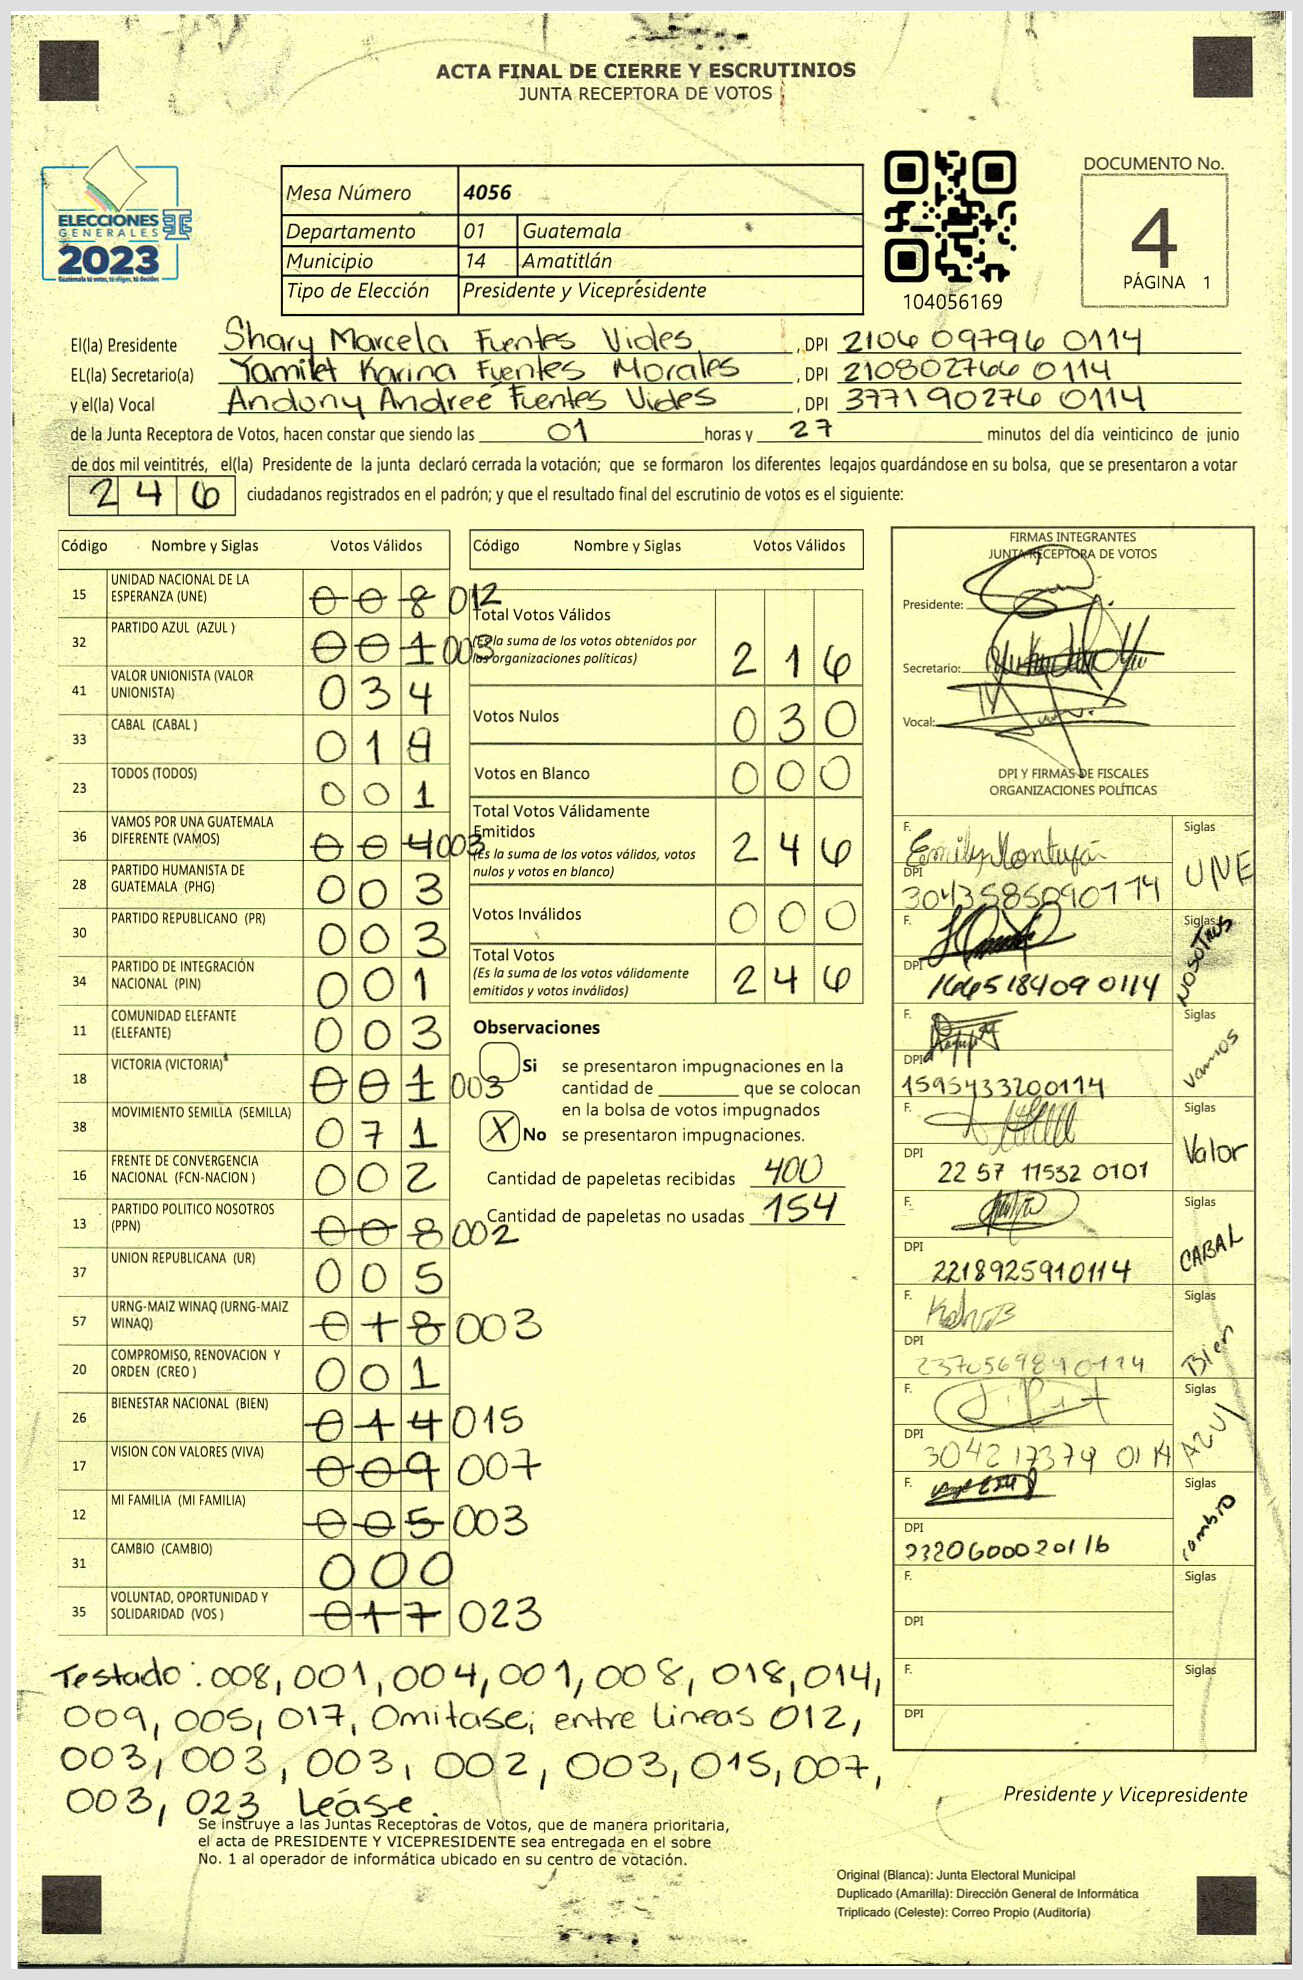 ACTA FINAL DE CIERRE Y ESCRUTINIOS
JUNTA RECEPTORA DE VOTOS
ELECCIONES
GENERALES
2023
Mesa Número 4056
Departamento 01 Guatemala
Municipio 14 Amatitlán
Tipo de Elección Presidente y Vicepresidente
104056169
DOCUMENTO No.
4
PÁGINA 1
El(la) Presidente Shary Marcela Fuentes Vides, DPI 2106 09796 0114
EL(la) Secretario(a) Yamilet Karina Fuentes Morales, DPI 210802766 0114
y el(la) Vocal Andony Andreé Fuentes Vides, DPI 377190276 0114
de la Junta Receptora de Votos, hacen constar que siendo las 01 horas y 27 minutos del día veinticinco de junio
de dos mil veintitrés, el(la) Presidente de la junta declaró cerrada la votación; que se formaron los diferentes legajos guardándose en su bolsa, que se presentaron a votar
246 ciudadanos registrados en el padrón; y que el resultado final del escrutinio de votos es el siguiente:
Código Nombre y Siglas Votos Válidos
15 UNIDAD NACIONAL DE LA
ESPERANZA (UNE) 008 012
32 PARTIDO AZUL (AZUL ) 001 003
41 VALOR UNIONISTA (VALOR
UNIONISTA) 034
33 CABAL (CABAL ) 01
23 TODOS (TODOS) 001
36 VAMOS POR UNA GUATEMALA
DIFERENTE (VAMOS) 004 003
28 PARTIDO HUMANISTA DE
GUATEMALA (PHG) 003
30 PARTIDO REPUBLICANO (PR) 003
34 PARTIDO DE INTEGRACIÓN
NACIONAL (PIN) 001
11 COMUNIDAD ELEFANTE
(ELEFANTE) 003
18 VICTORIA (VICTORIA) 001 003
38 MOVIMIENTO SEMILLA (SEMILLA) 071
16 FRENTE DE CONVERGENCIA
NACIONAL (FCN-NACION ) 002
13 PARTIDO POLITICO NOSOTROS
(PPN) 008 002
37 UNION REPUBLICANA (UR) 005
57 URNG-MAIZ WINAQ (URNG-MAIZ
WINAQ) 018 003
20 COMPROMISO, RENOVACION Y
ORDEN (CREO ) 001
26 BIENESTAR NACIONAL (BIEN) 014 015
17 VISION CON VALORES (VIVA) 009 007
12 MI FAMILIA (MI FAMILIA) 005 003
31 CAMBIO (CAMBIO) 000
35 VOLUNTAD, OPORTUNIDAD Y
SOLIDARIDAD (VOS ) 017 023
Código Nombre y Siglas Votos Válidos
Total Votos Válidos
(Es la suma de los votos obtenidos por
las organizaciones políticas) 216
Votos Nulos 030
Votos en Blanco 000
Total Votos Válidamente
Emitidos
(Es la suma de los votos válidos, votos
nulos y votos en blanco) 246
Votos Inválidos 000
Total Votos
(Es la suma de los votos válidamente
emitidos y votos inválidos) 246
Observaciones
Si se presentaron impugnaciones en la
cantidad de ________ que se colocan
en la bolsa de votos impugnados
X No se presentaron impugnaciones.
Cantidad de papeletas recibidas 400
Cantidad de papeletas no usadas 154
FIRMAS INTEGRANTES
JUNTA RECEPTORA DE VOTOS
Presidente:
Secretario:
Vocal:
DPI Y FIRMAS DE FISCALES
ORGANIZACIONES POLÍTICAS
F. Emily Montufár Siglas
DPI UNE
3043585090114
F. Siglas
DPI 1665184090114 NOSOTROS
F. Siglas
DPI Vamos
1595433200114
F. Siglas
DPI Valor
22 57 11532 0101
F. Siglas
DPI CABAL
2218925910114
F. Siglas
DPI Bien
2370569890114
F. Siglas
DPI AZUl
304217379 0114
F. Siglas
DPI Cambio
2320600020116
F. Siglas
DPI
F. Siglas
DPI
Testado: 008, 001, 004, 001, 008, 018, 014,
009, 005, 017, Omitase; entre líneas 012,
003, 003, 003, 002, 003, 015, 007,
003, 023 Leáse.
Presidente y Vicepresidente
Se instruye a las Juntas Receptoras de Votos, que de manera prioritaria,
el acta de PRESIDENTE Y VICEPRESIDENTE sea entregada en el sobre
No. 1 al operador de informática ubicado en su centro de votación.
Original (Blanca): Junta Electoral Municipal
Duplicado (Amarilla): Dirección General de Informática
Triplicado (Celeste): Correo Propio (Auditoría)